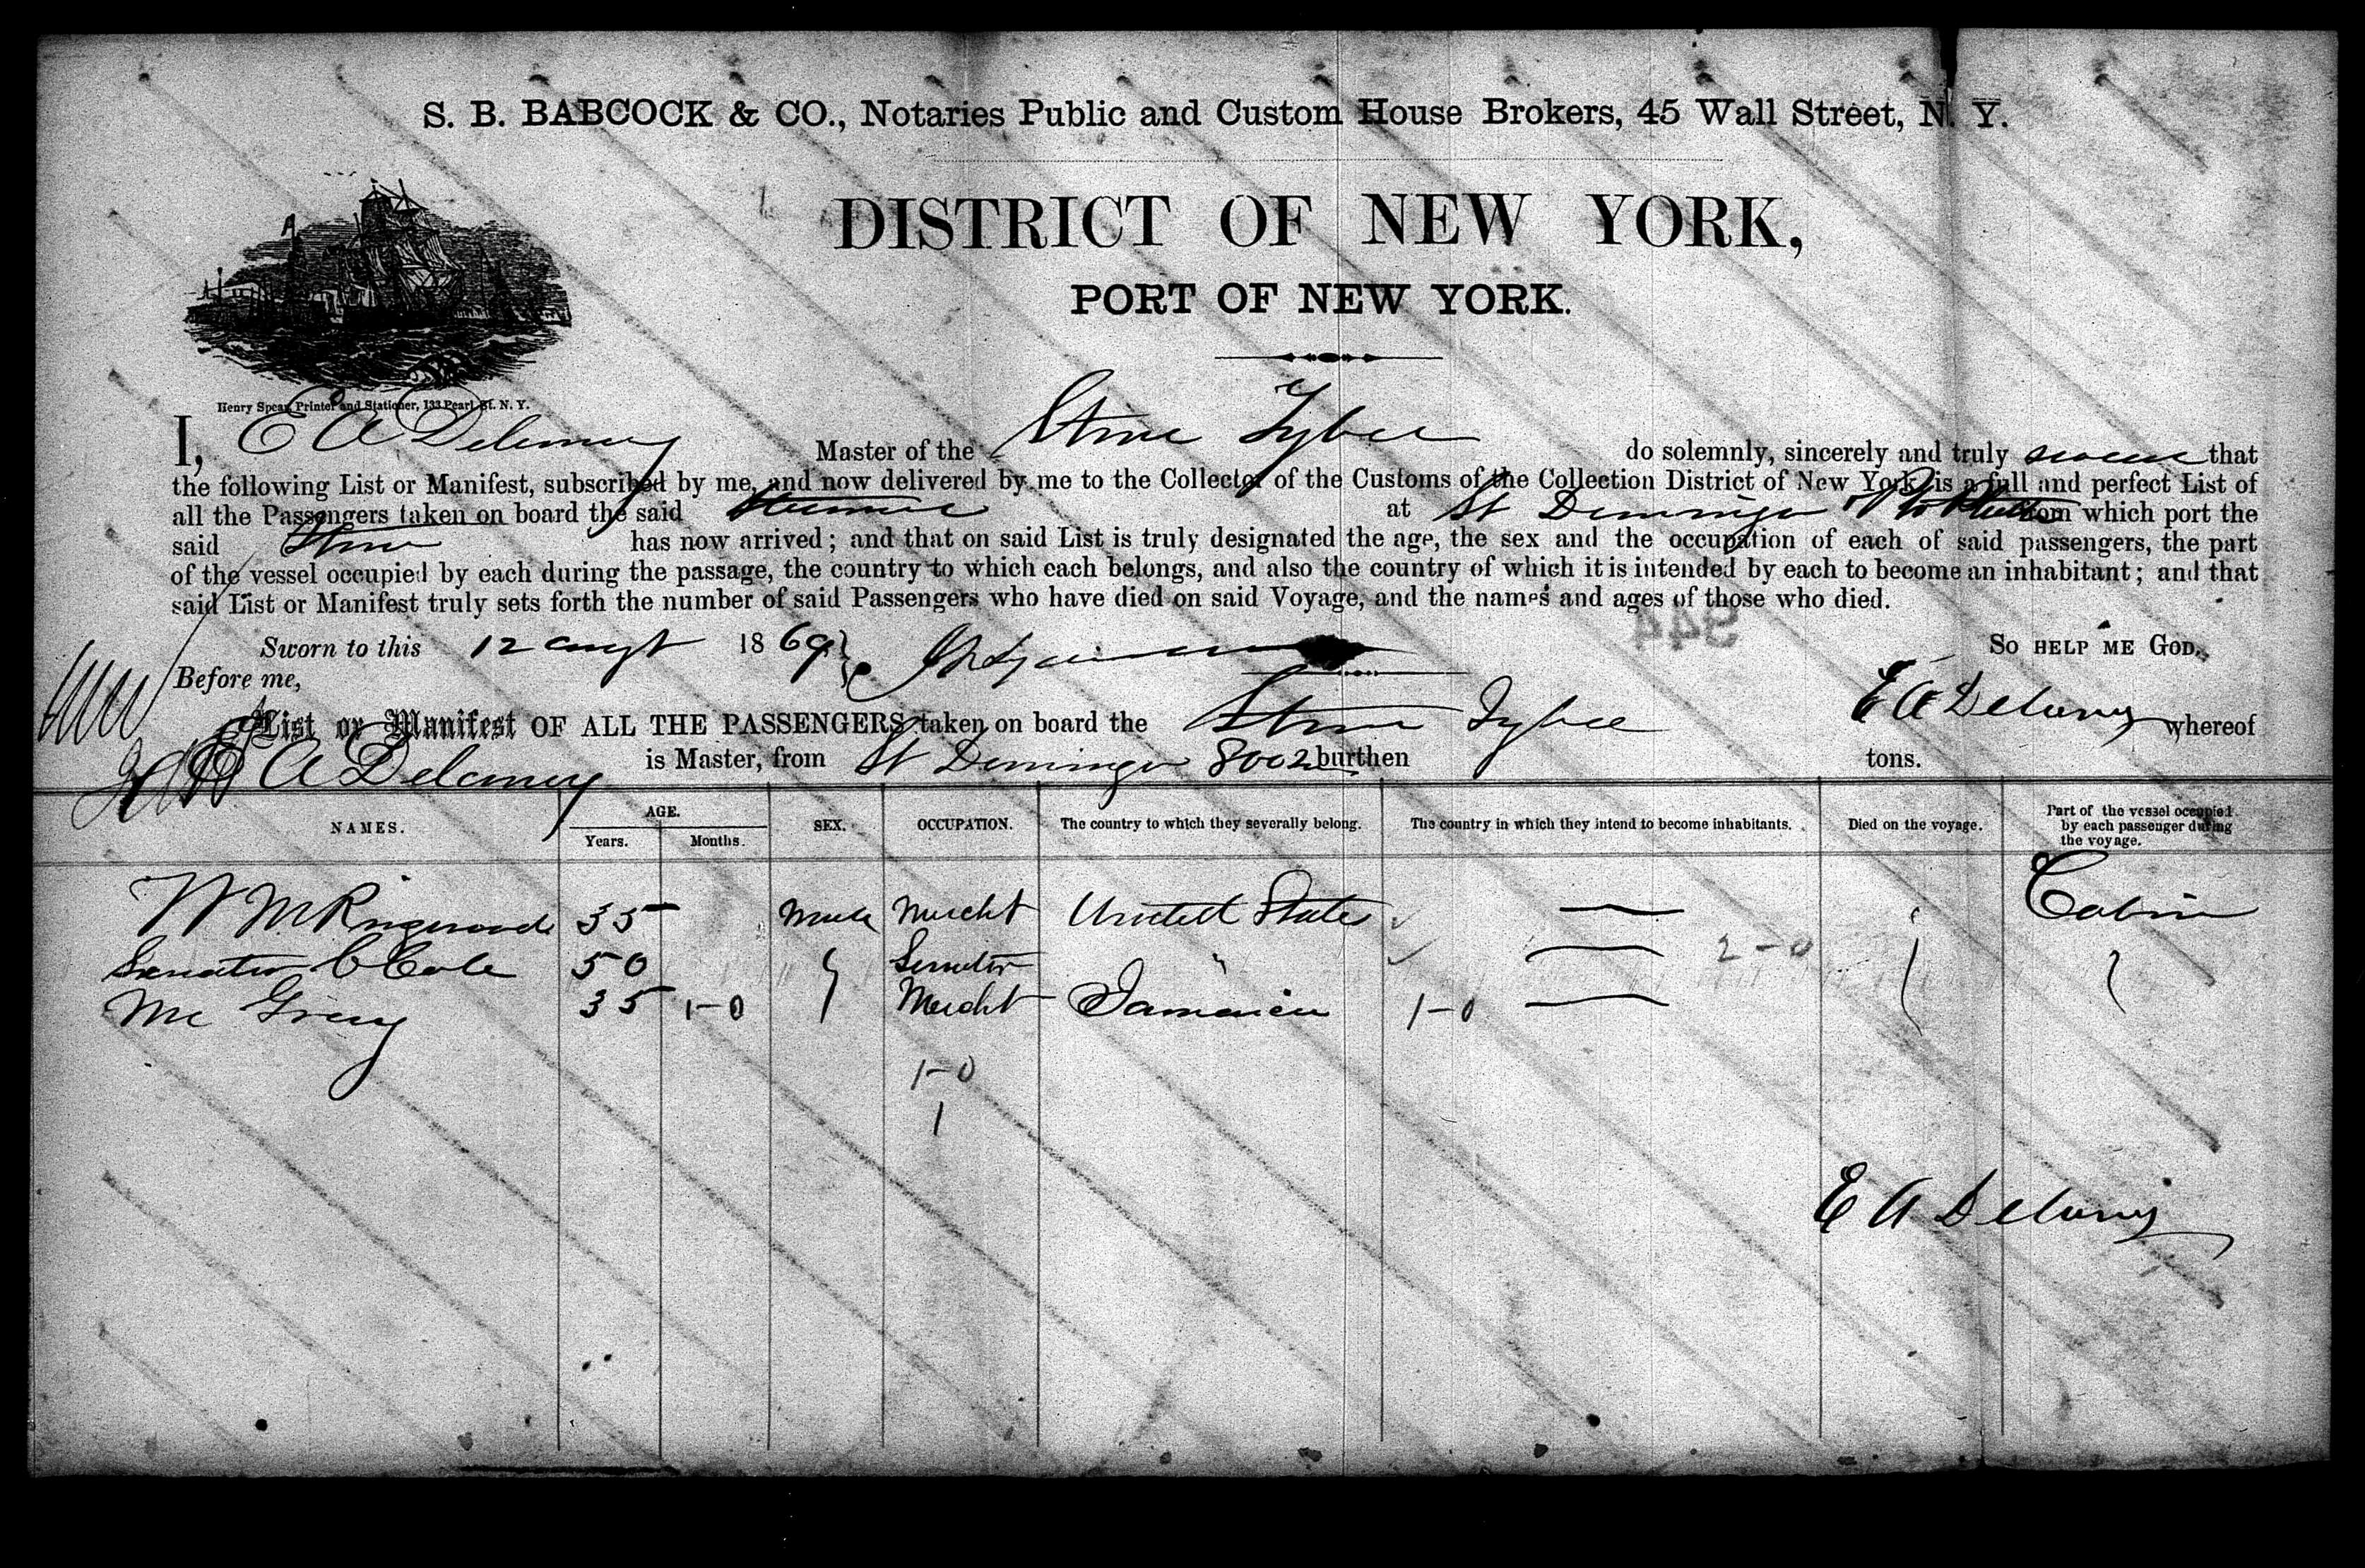 S. B. BABCOCK & CO., Notaries Public and Custom House Brokers, 45 Wall Street, N. Y.
DISTRICT OF NEW YORK,
PORT OF NEW YORK.
Henry Spear, Printer and Stationer, 133 Pearl St. N. Y.
I, E A Delaney Master of the Stmr Tybee do solemnly, sincerely and truly swear that
the following List or Manifest, subscribed by me, and now delivered by me to the Collector of the Customs of the Collection District of New York, is a full and perfect List of
all the Passengers taken on board the said Steamer at St Domingo from which port the
said Stmr has now arrived; and that on said List is truly designated the age, the sex and the occupation of each of said passengers, the part
of the vessel occupied by each during the passage, the country to which each belongs, and also the country of which it is intended by each to become an inhabitant; and that
said List or Manifest truly sets forth the number of said Passengers who have died on said Voyage, and the names and ages of those who died.
344
Sworn to this 12 augt 1869 So HELP ME GOD.
Before me, E A Delaney
List or Manifest OF ALL THE PASSENGERS taken on board the Stmr Tybee whereof
E A Delaney is Master, from St Domingo 8002 burthen tons.
NAMES. AGE. Years. Months. SEX. OCCUPATION. The country to which they severally belong. The country in which they intend to become inhabitants. Died on the voyage. Part of the vessel occupied by each passenger during the voyage.
W M Ringwood 35 Male Mercht United State Cabin
Senator C Cole 50 Senator " 2-0
Mc 35 1-0 Mercht Jamaica 1-0
1-0
1
E A Delaney